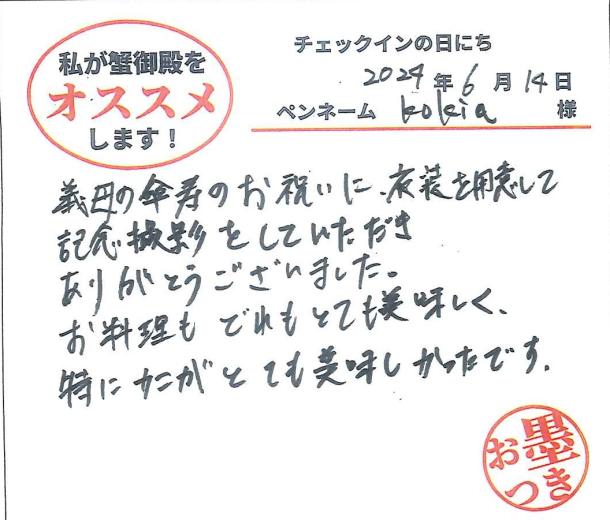 私が蟹御殿を
オススメ
します！
チェックインの日にち
2024年6月14日
ペンネーム kokia 様
義母の傘寿のお祝いに、衣装を用意して
記念撮影をしていただき
ありがとうございました。
お料理も どれもとても美味しく、
特にカニがとても美味しかったです。
お墨つき